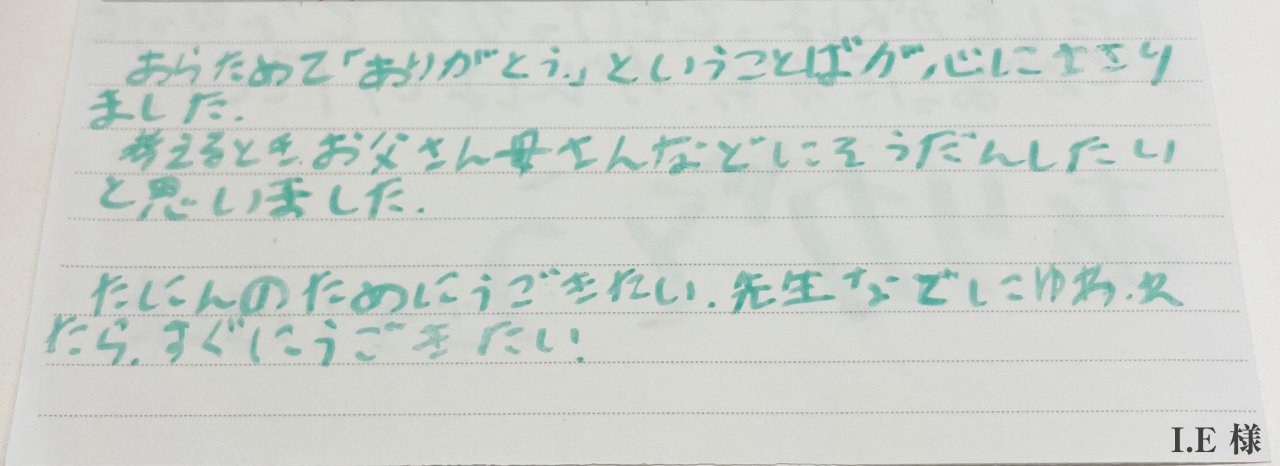 あらためて「ありがとう」ということばが、心にささり
ました。
考えるとき、お父さん母さんなどにそうだんしたい
と思いました。
たにんのためにうごきたい、先生などにゆわれ
たら、すぐにうごきたい!
I.E 様